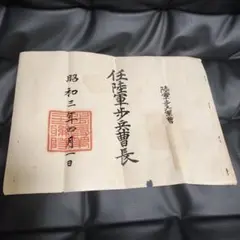 陸軍步兵軍曹
任陸軍步兵曹長
昭和三年四月一日